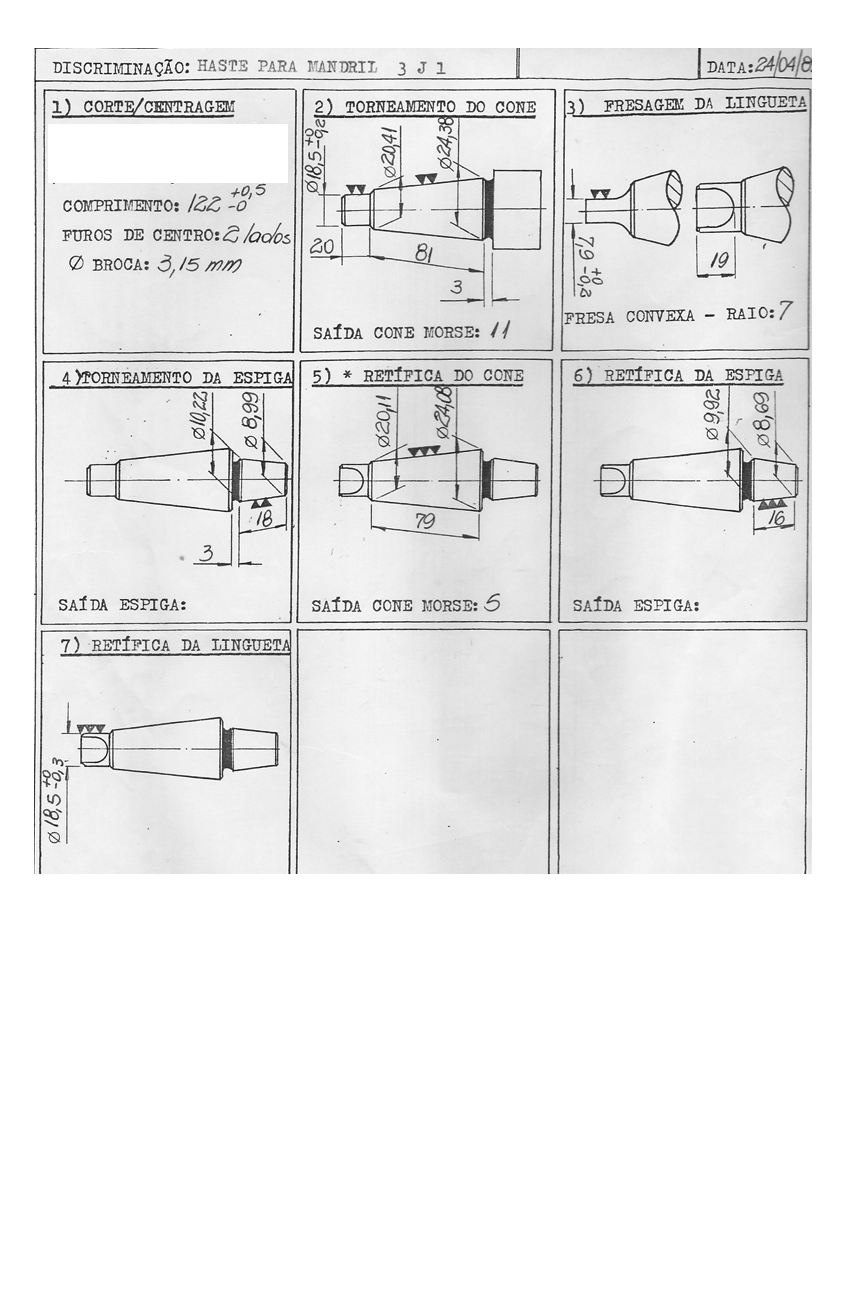 DISCRIMINAÇÃO: HASTE PARA MANDRIL 3 J 1
DATA: 24/04/8
1) CORTE/CENTRAGEM
COMPRIMENTO: 122 +0,5 -0
FUROS DE CENTRO: 2 lados
Ø BROCA: 3,15 mm
2) TORNEAMENTO DO CONE
Ø18,5 +0 -0,2
Ø20,41
Ø24,38
20
81
3
SAÍDA CONE MORSE: 11
3) FRESAGEM DA LINGUETA
7,9 +0 -0,2
19
FRESA CONVEXA - RAIO: 7
4) TORNEAMENTO DA ESPIGA
Ø10,22
Ø8,99
18
3
SAÍDA ESPIGA:
5) * RETÍFICA DO CONE
Ø20,11
Ø24,08
79
SAÍDA CONE MORSE: 5
6) RETÍFICA DA ESPIGA
Ø9,92
Ø8,69
16
SAÍDA ESPIGA:
7) RETÍFICA DA LINGUETA
Ø18,5 +0 -0,3